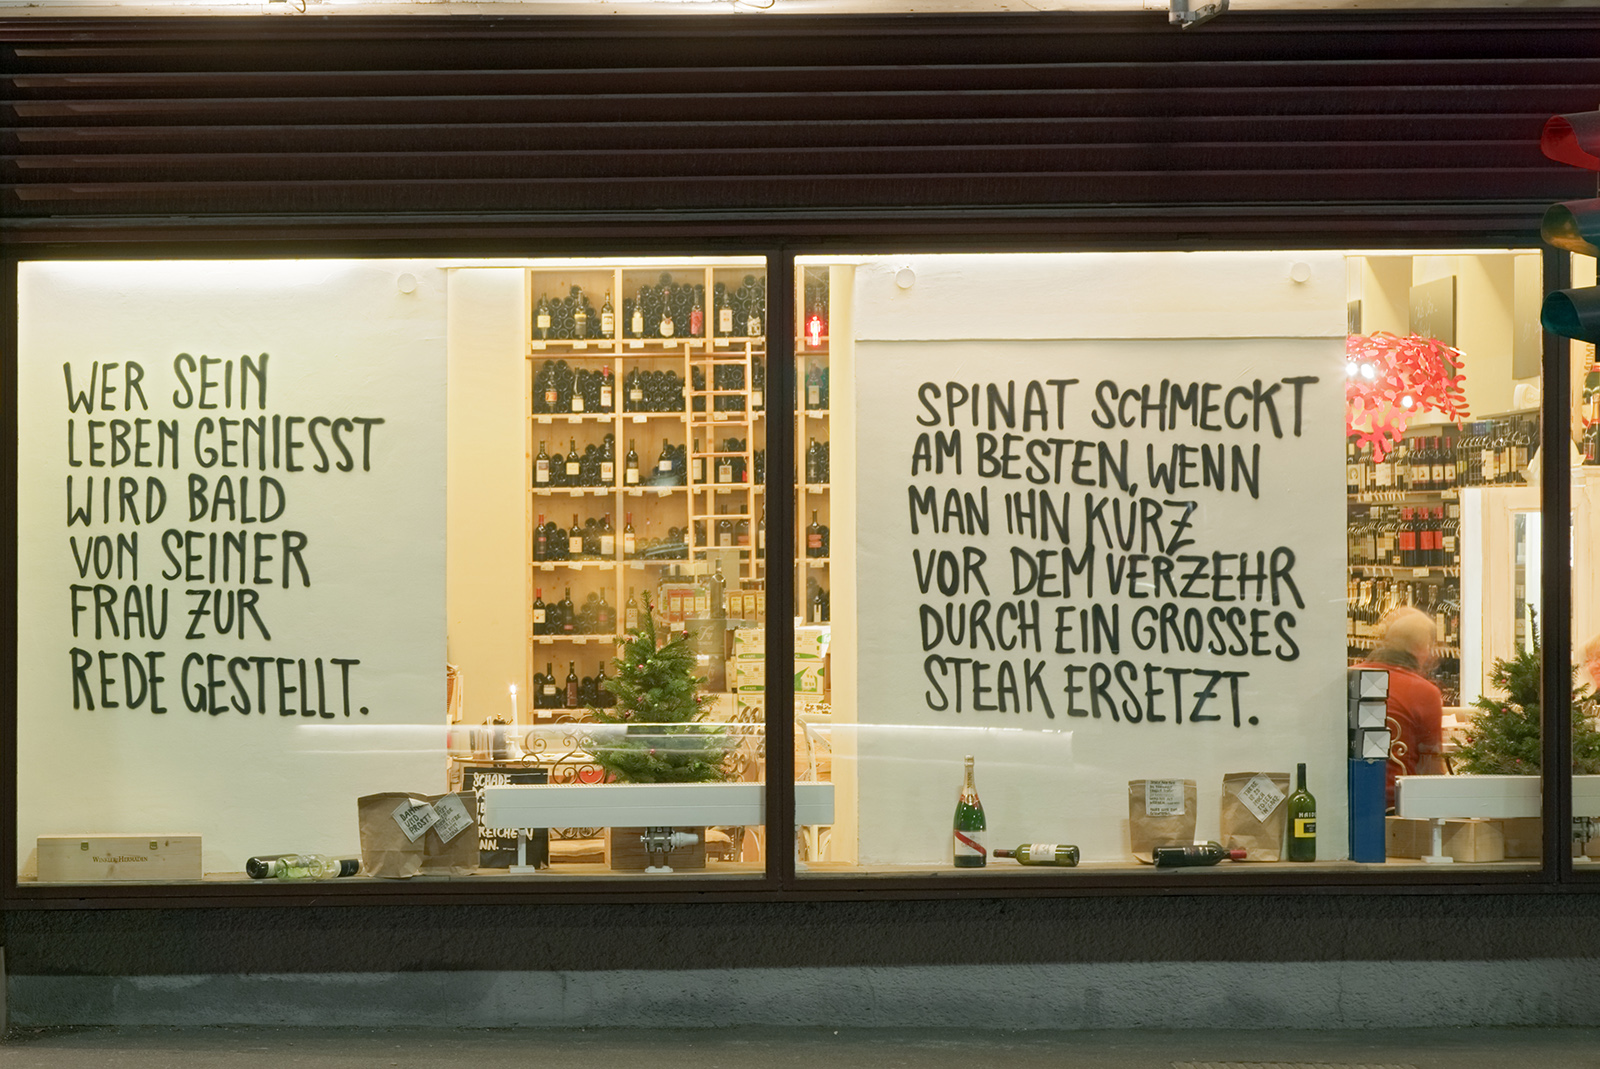 WER SEIN
LEBEN GENIESST
WIRD BALD
VON SEINER
FRAU ZUR
REDE GESTELLT.
SPINAT SCHMECKT
AM BESTEN, WENN
MAN IHN KURZ
VOR DEM VERZEHR
DURCH EIN GROSSES
STEAK ERSETZT.
SCHADE
REICHEN